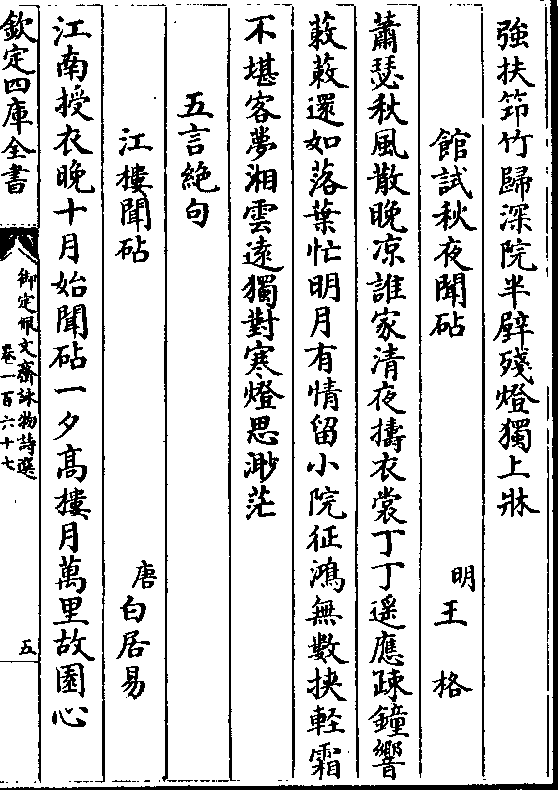 強扶筇竹歸深院半壁殘燈獨上牀
館試秋夜聞砧 明王格
蕭瑟秋風散晚凉誰家清夜擣衣裳丁丁遥應疎鐘響
蔌蔌還如落葉忙明月有情留小院征鴻無數挾輕霜
不堪客夢湘雲遠獨對寒燈思渺茫
五言絶句
江樓聞砧 唐白居易
江南授衣晚十月始聞砧一夕髙樓月萬里故園心
欽定四庫全書
御定佩文齋詠物詩選
卷一百六十七
五